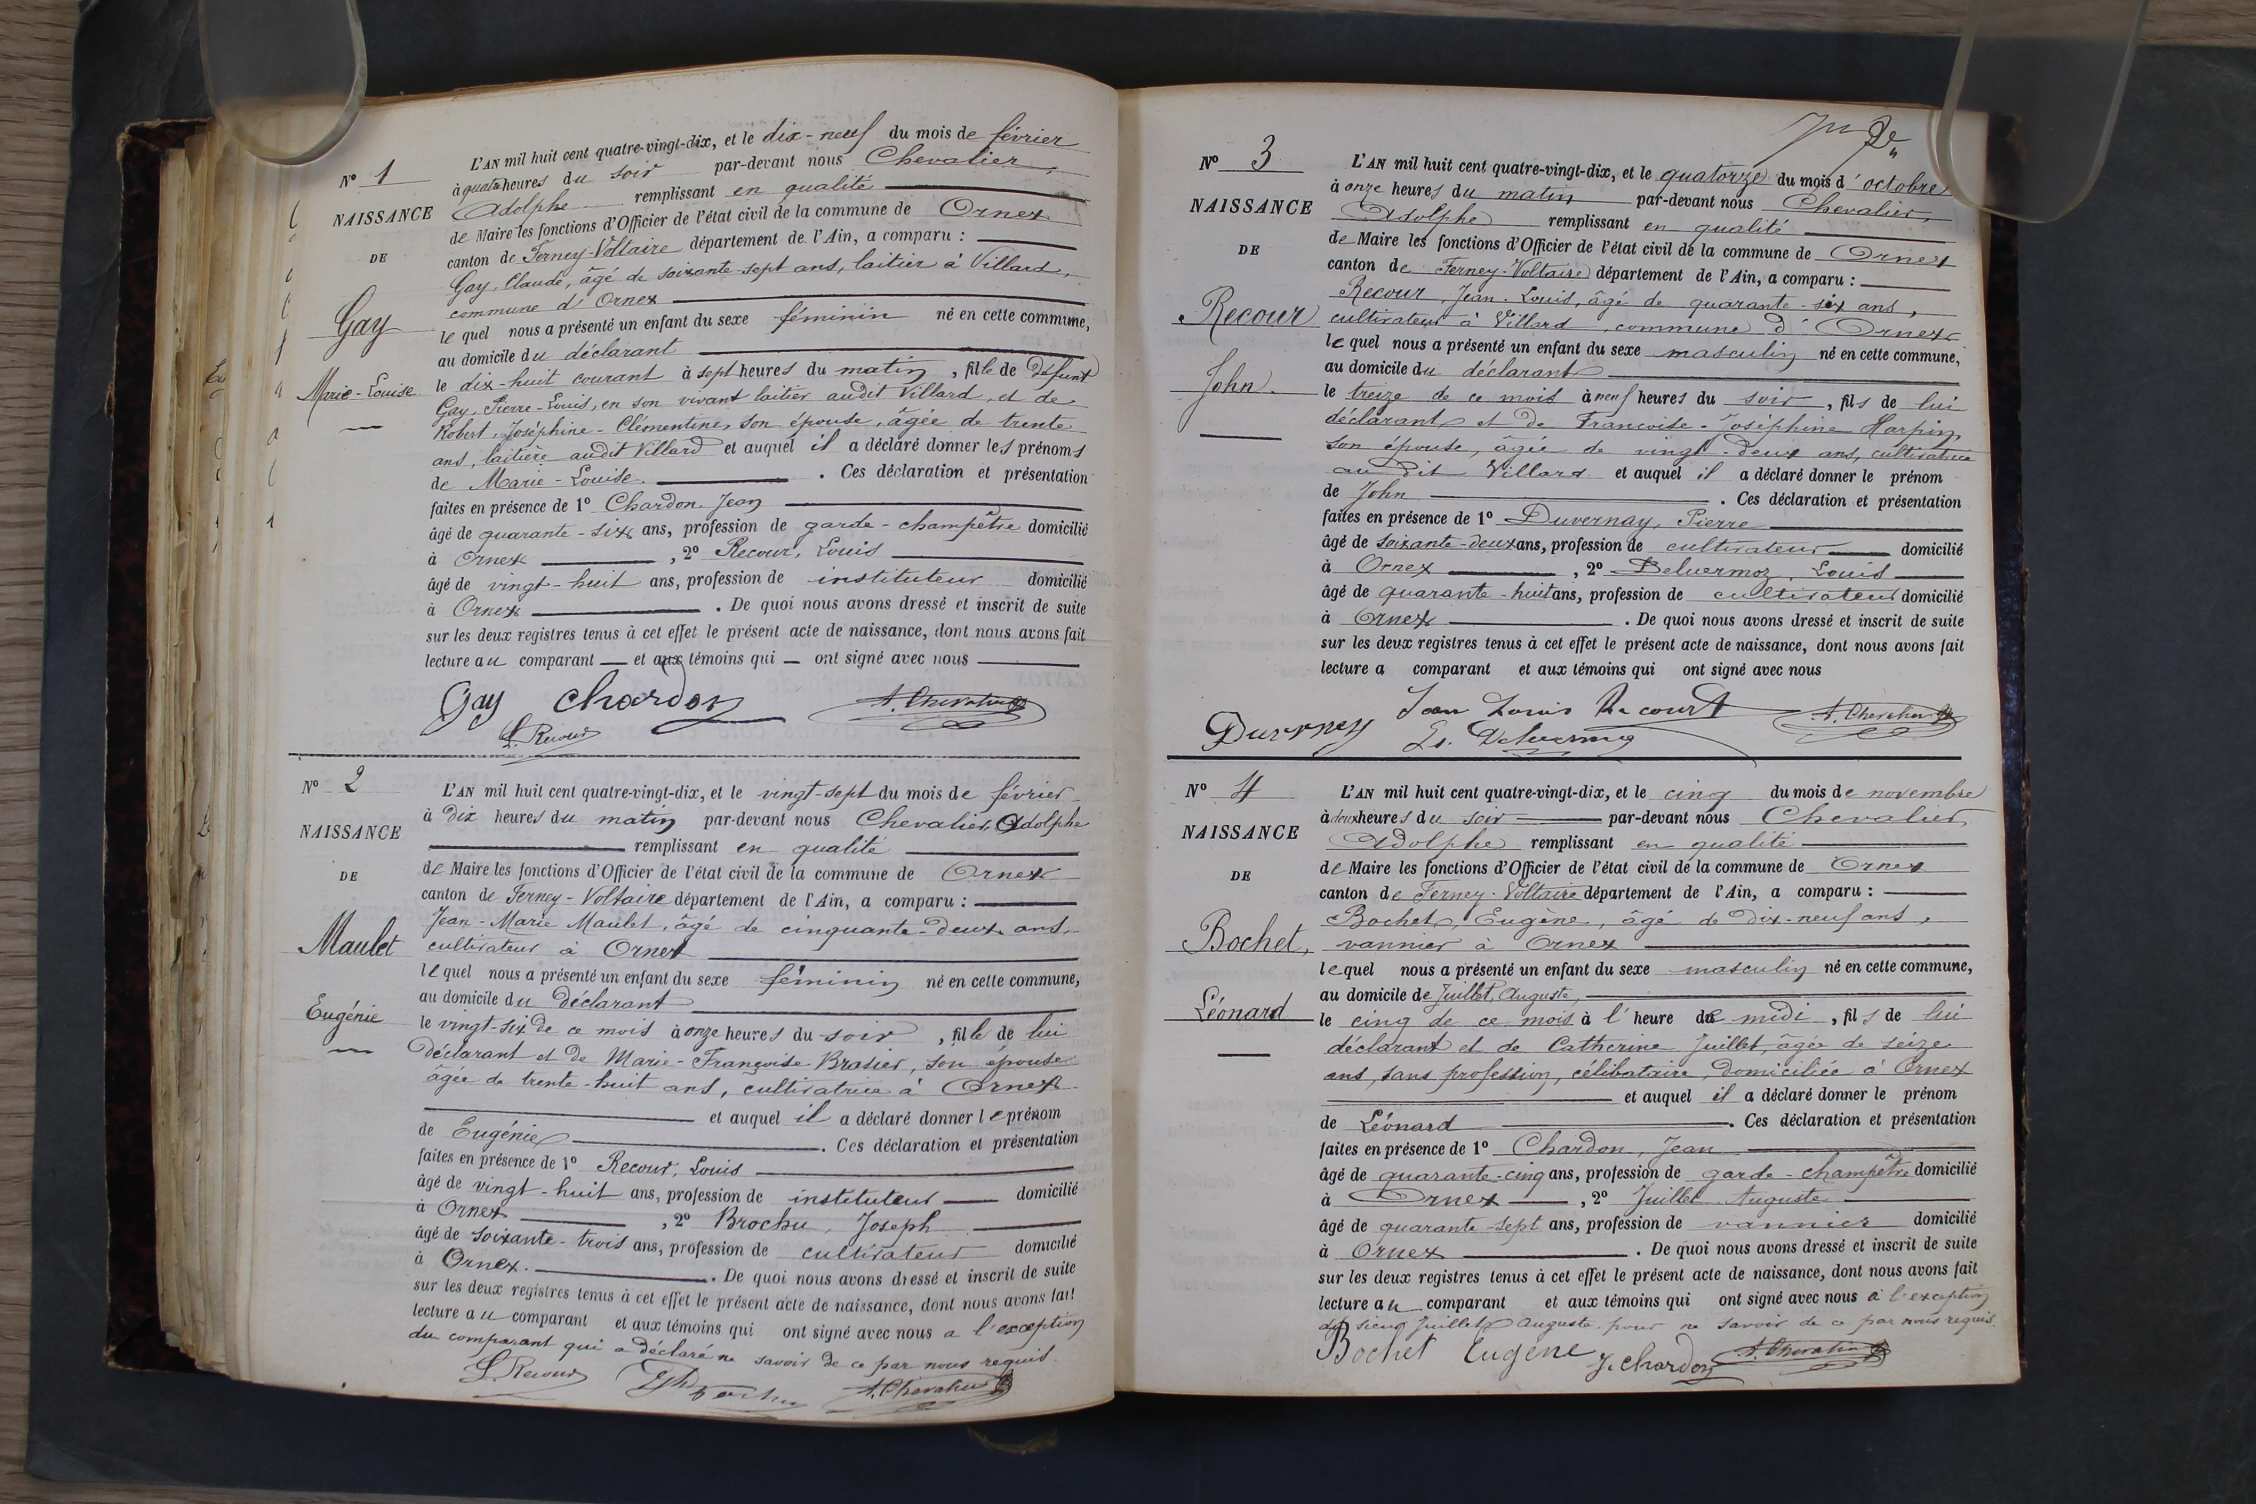 N° 1
NAISSANCE
DE
Gay
Marie-Louise
L'AN mil huit cent quatre-vingt-dix, et le dix-neuf du mois de février
à quatre heures du soir par-devant nous Chevalier,
Adolphe remplissant en qualité
de Maire les fonctions d'Officier de l'état civil de la commune de Ornex
canton de Ferney-Voltaire département de l'Ain, a comparu :
Gay, Claude, âgé de soixante-sept ans, laitier à Villard,
commune d'Ornex
lequel nous a présenté un enfant du sexe féminin né en cette commune,
au domicile du déclarant
le dix-huit courant à sept heures du matin, fille de défunt
Gay, Pierre-Louis, en son vivant laitier audit Villard, et de
Robert, Joséphine-Clémentine, son épouse, âgée de trente
ans, laitière audit Villard et auquel il a déclaré donner les prénoms
de Marie-Louise. . Ces déclaration et présentation
faites en présence de 1° Chardon, Jean
âgé de quarante-six ans, profession de garde-champêtre domicilié
à Ornex , 2° Recour, Louis
âgé de vingt-huit ans, profession de instituteur domicilié
à Ornex . De quoi nous avons dressé et inscrit de suite
sur les deux registres tenus à cet effet le présent acte de naissance, dont nous avons fait
lecture au comparant et aux témoins qui ont signé avec nous
Gay Chardon A. Chevalier
L. Recour
N° 2
NAISSANCE
DE
Maulet
Eugénie
L'AN mil huit cent quatre-vingt-dix, et le vingt-sept du mois de février
à dix heures du matin par-devant nous Chevalier, Adolphe
remplissant en qualité
de Maire les fonctions d'Officier de l'état civil de la commune de Ornex
canton de Ferney-Voltaire département de l'Ain, a comparu :
Jean-Marie Maulet, âgé de cinquante-deux ans,
cultivateur à Ornex
lequel nous a présenté un enfant du sexe féminin né en cette commune,
au domicile du déclarant
le vingt-six de ce mois à onze heures du soir , fille de lui
déclarant et de Marie-Françoise Brasier, son épouse
âgée de trente-huit ans, cultivatrice à Ornex
et auquel il a déclaré donner le prénom
de Eugénie . Ces déclaration et présentation
faites en présence de 1° Recour, Louis
âgé de vingt-huit ans, profession de instituteur domicilié
à Ornex , 2° Brochu, Joseph
âgé de soixante-trois ans, profession de cultivateur domicilié
à Ornex. . De quoi nous avons dressé et inscrit de suite
sur les deux registres tenus à cet effet le présent acte de naissance, dont nous avons fait
lecture au comparant et aux témoins qui ont signé avec nous a l'exception
du comparant qui a déclaré ne savoir de ce par nous requis.
L. Recour A. Chevalier
N° 3
NAISSANCE
DE
Recour
John.
L'AN mil huit cent quatre-vingt-dix, et le quatorze du mois d'octobre
à onze heures du matin par-devant nous Chevalier,
Adolphe remplissant en qualité
de Maire les fonctions d'Officier de l'état civil de la commune de Ornex
canton de Ferney-Voltaire département de l'Ain, a comparu :
Recour, Jean-Louis, âgé de quarante-six ans,
cultivateur à Villard, commune d'Ornex
lequel nous a présenté un enfant du sexe masculin né en cette commune,
au domicile du déclarant
le treize de ce mois à neuf heures du soir , fils de lui
déclarant et de Françoise-Joséphine Harpin
son épouse, âgée de vingt-deux ans, cultivatrice
au dit Villard et auquel il a déclaré donner le prénom
de John . Ces déclaration et présentation
faites en présence de 1° Duvernay, Pierre
âgé de soixante-deux ans, profession de cultivateur domicilié
à Ornex , 2° Deluermoz, Louis
âgé de quarante-huit ans, profession de cultivateur domicilié
à Ornex . De quoi nous avons dressé et inscrit de suite
sur les deux registres tenus à cet effet le présent acte de naissance, dont nous avons fait
lecture a comparant et aux témoins qui ont signé avec nous
Jean Louis Recourt A. Chevalier
N° 4
NAISSANCE
DE
Bochet,
Léonard
L'AN mil huit cent quatre-vingt-dix, et le cinq du mois de novembre
à deux heures du soir par-devant nous Chevalier
Adolphe remplissant en qualité
de Maire les fonctions d'Officier de l'état civil de la commune de Ornex
canton de Ferney-Voltaire département de l'Ain, a comparu :
Bochet, Eugène, âgé de dix-neuf ans,
vannier à Ornex
lequel nous a présenté un enfant du sexe masculin né en cette commune,
au domicile de Juillet, Auguste,
le cinq de ce mois à l'heure de midi , fils de lui
déclarant et de Catherine Juillet, âgée de seize
ans, sans profession, célibataire, domiciliée à Ornex
et auquel il a déclaré donner le prénom
de Léonard . Ces déclaration et présentation
faites en présence de 1° Chardon, Jean
âgé de quarante-cinq ans, profession de garde-champêtre domicilié
à Ornex , 2° Juillet Auguste
âgé de quarante-sept ans, profession de vannier domicilié
à Ornex . De quoi nous avons dressé et inscrit de suite
sur les deux registres tenus à cet effet le présent acte de naissance, dont nous avons fait
lecture au comparant et aux témoins qui ont signé avec nous à l'exception
du sieur Juillet Auguste pour ne savoir de ce par nous requis.
Bochet Eugène J. Chardon A. Chevalier